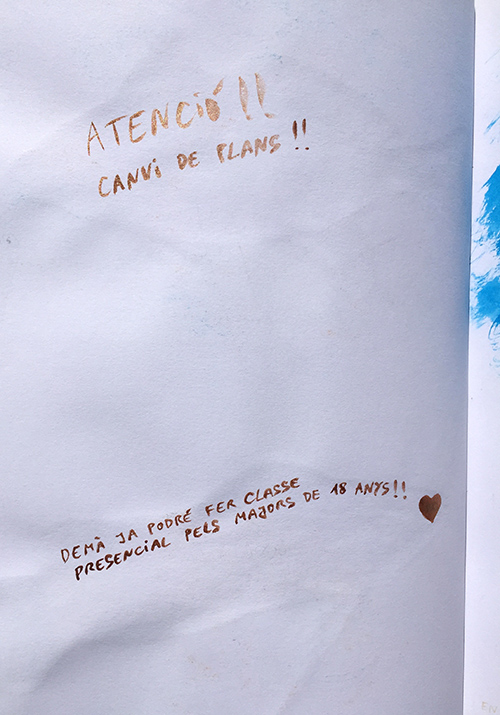 ATENCIÓ!!
CANVI DE PLANS!!
DEMÀ JA PODRÉ FER CLASSE
PRESENCIAL PELS MAJORS DE 18 ANYS!!